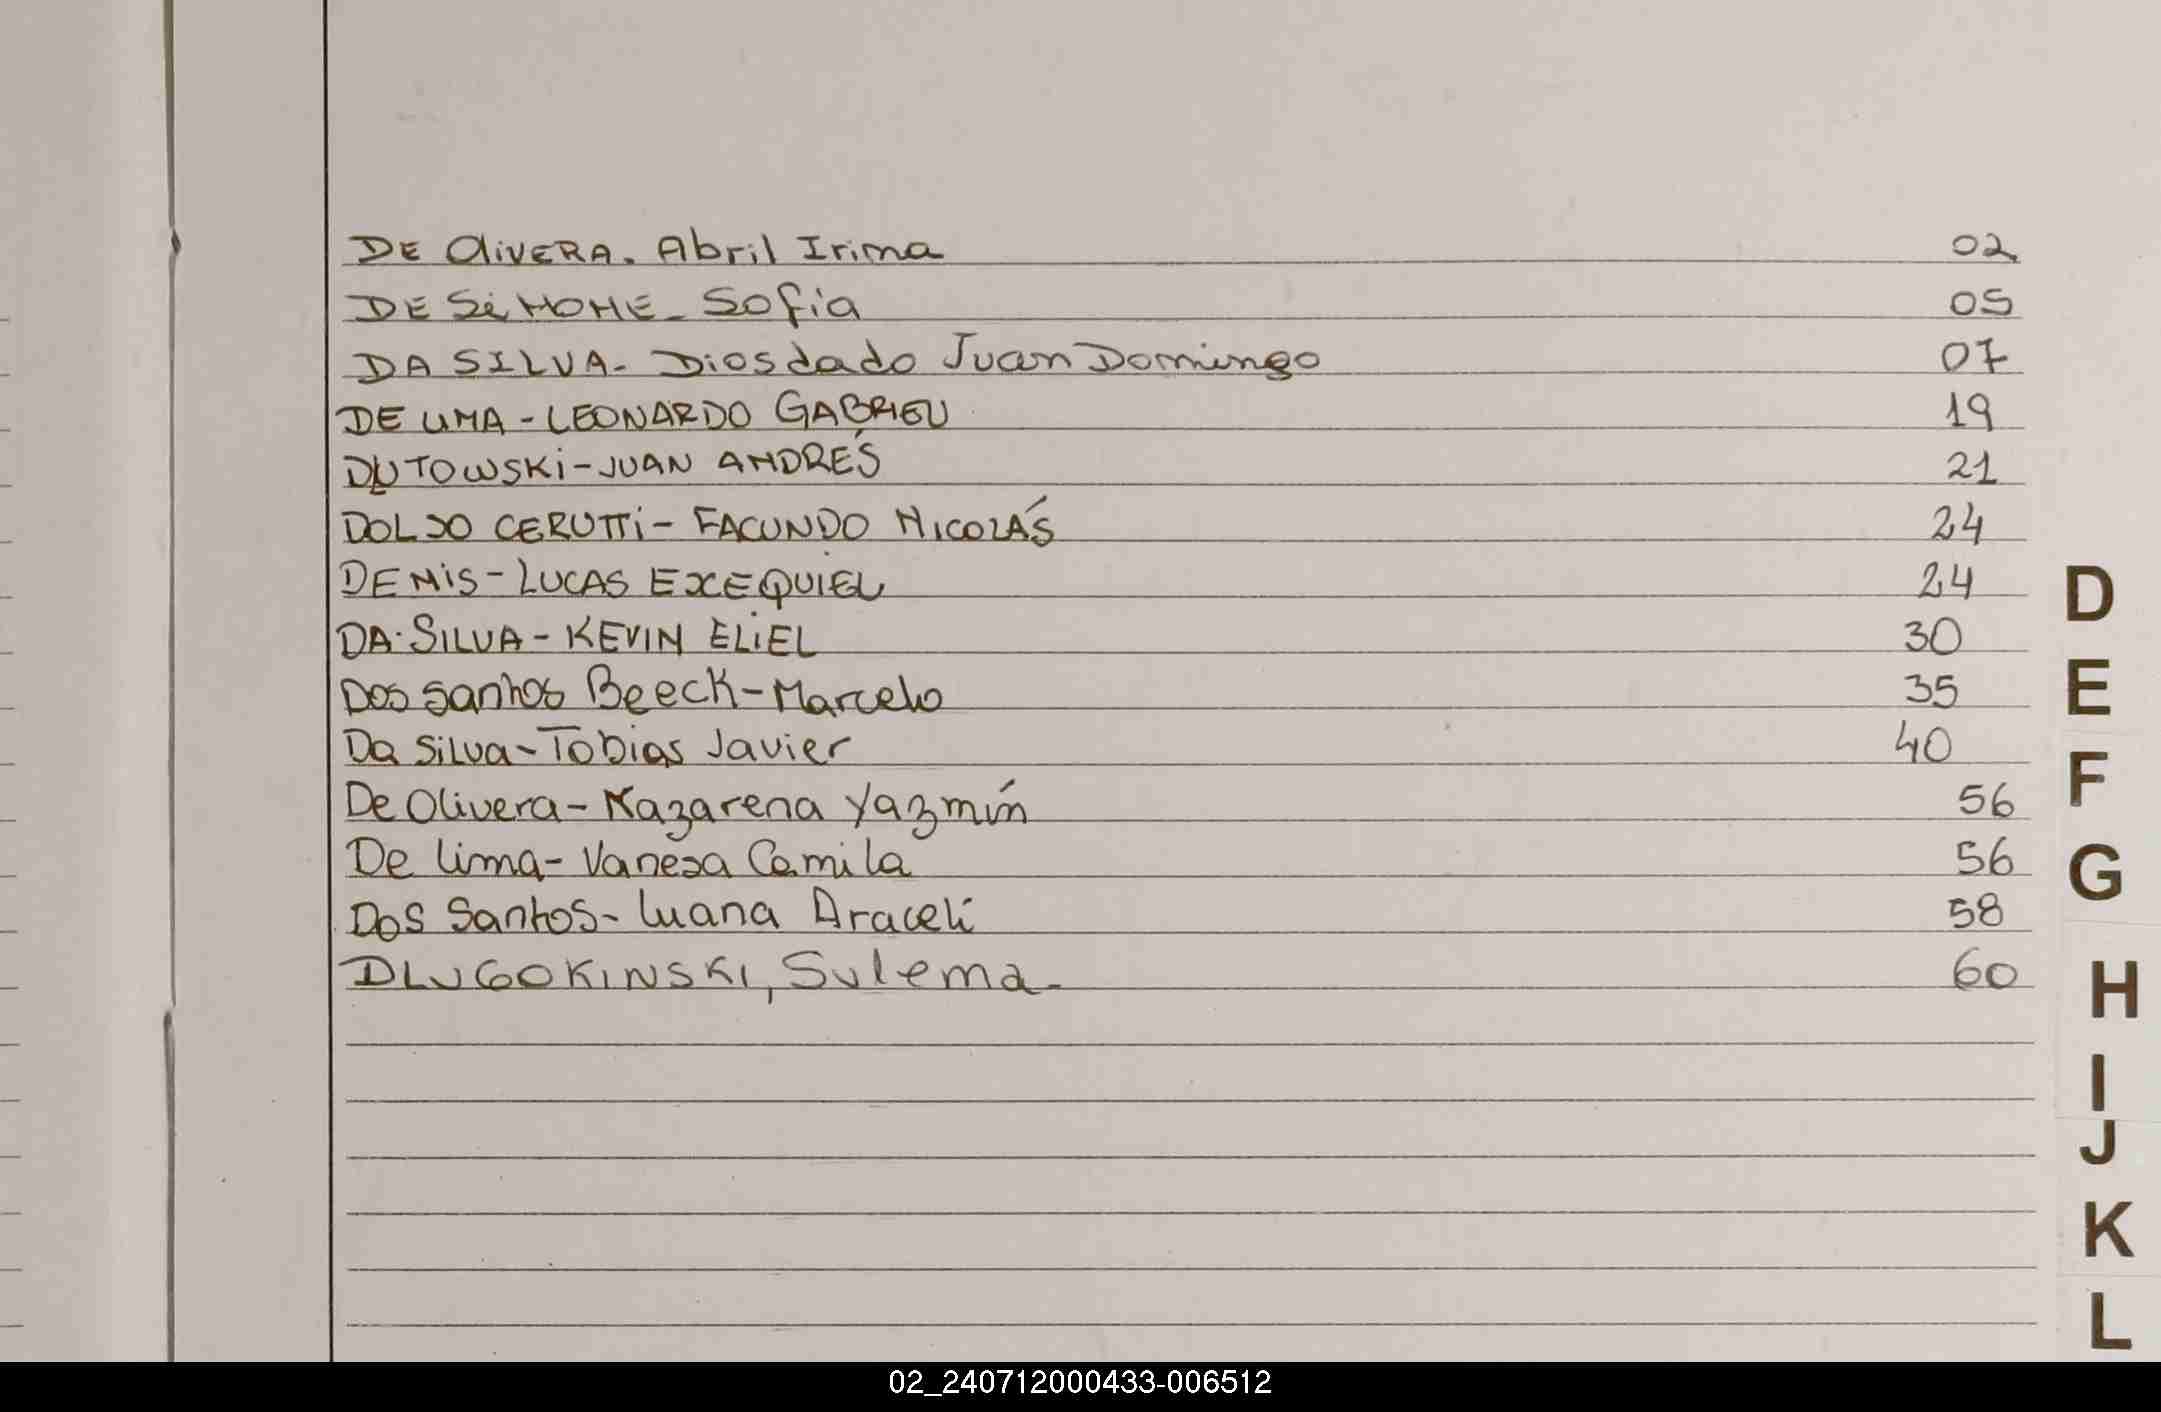 DE OlivERA. Abril Irima 02
DE SiMONE - Sofia 05
DA SILVA - Diosdado Juan Domingo 07
DE LIMA - LEONARDO GABRIEL 19
JUAN ANDRÉS 21
DOLSO CERUTTi - FACUNDO NICOLÁS 24
DENIS - LUCAS EXEQUIEL 24
DA SILVA - KEVIN ELiEL 30
Dos santos Beeck - Marcelo 35
Da Silva - Tobias Javier 40
De Olivera - Nazarena Yazmín 56
De Lima - Vanesa Camila 56
Dos Santos - Luana Araceli 58
DLUGOKINSKI, Sulema - 60
D
E
F
G
H
I
J
K
L
02_240712000433-006512